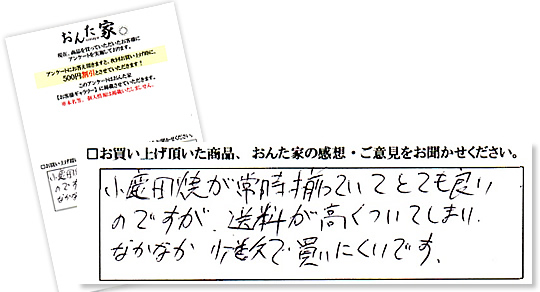 おんた家。
現在、商品を買っていただいたお客様に
アンケートを実施しております。
アンケートにお答え頂きますと、次回お買い上げ時に、
500円割引とさせていただきます!
このアンケートはおんた家
【お客様ギャラリー】に掲載させていただきます。
※本名等、個人情報は掲載いたしません。
□お買い上げ頂いた商品、おんた家の感想・ご意見をお聞かせください。
小鹿田焼が常時揃っていてとても良い
のですが、送料が高くついてしまい、
なかなか 少数で買いにくいです。